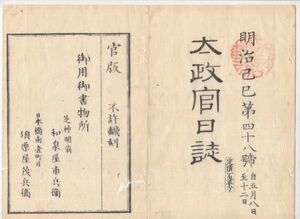 明治己巳第四十八號
自五月八日
至十二日
太政官日誌
官版
不許翻刻
御用御書物所
芝神明前
和泉屋市兵衛
日本橋南壹町目
須原屋茂兵衛